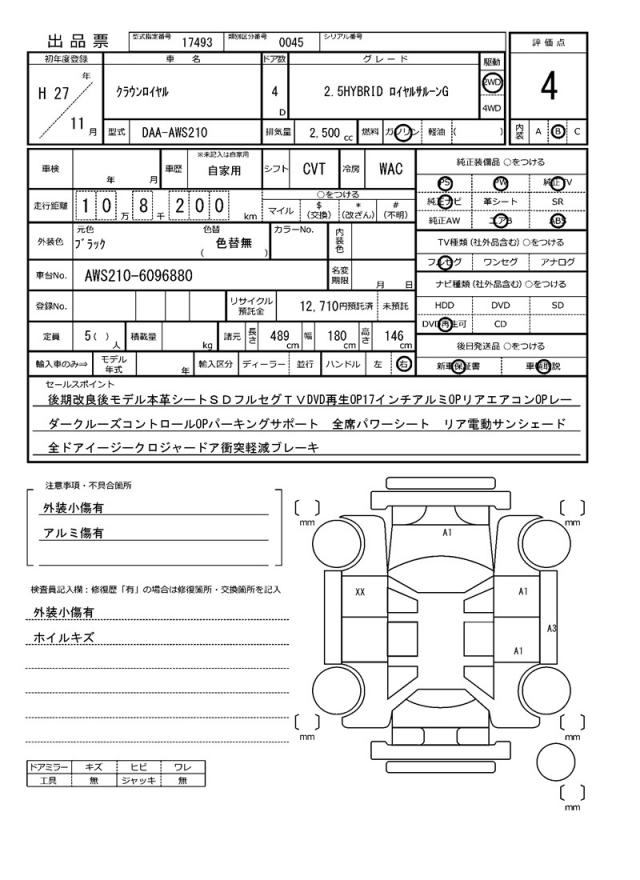 出品票 型式指定番号 17493 類別区分番号 0045 シリアル番号
評価点
4
内装 A B C
初年度登録 車名 ドア数 グレード 駆動
H 27 年 11 月 クラウンロイヤル 4 D 2.5HYBRID ロイヤルサルーンG 2WD 4WD
型式 DAA-AWS210 排気量 2,500 cc 燃料 ガソリン 軽油 ( )
車検 年 月 車歴 ※未記入は自家用 自家用 シフト CVT 冷房 WAC
走行距離 10万8千200 km ○をつける マイル $(交換) *(改ざん) #(不明)
外装色 元色 ブラック 色替 ( 色替無 ) カラーNo. 内装色
車台No. AWS210-6096880 名変期限 月 日
登録No. リサイクル預託金 12,710円預託済 未預託
定員 5( )人 積載量 kg 諸元 長さ 489cm 幅 180cm 高さ 146cm
輸入車のみ⇒ モデル年式 年 輸入区分 ディーラー 並行 ハンドル 左 右
純正装備品 ○をつける
PS PW 純正TV
純正ナビ 革シート SR
純正AW エアB ABS
TV種類(社外品含む)○をつける
フルセグ ワンセグ アナログ
ナビ種類(社外品含む)○をつける
HDD DVD SD
DVD再生可 CD
後日発送品 ○をつける
新車保証書 車輌取説
セールスポイント
後期改良後モデル本革シートSDフルセグTVDVD再生OP17インチアルミOPリアエアコンOPレー
ダークルーズコントロールOPパーキングサポート 全席パワーシート リア電動サンシェード
全ドアイージークロジャードア衝突軽減ブレーキ
注意事項・不具合箇所
外装小傷有
アルミ傷有
検査員記入欄：修復歴「有」の場合は修復箇所・交換箇所を記入
外装小傷有
ホイルキズ
ドアミラー キズ ヒビ ワレ
工具 無 ジャッキ 無
[ ] mm [ ] mm
A1
XX A1
A3
A1
[ ] mm [ ] mm
[ ] mm